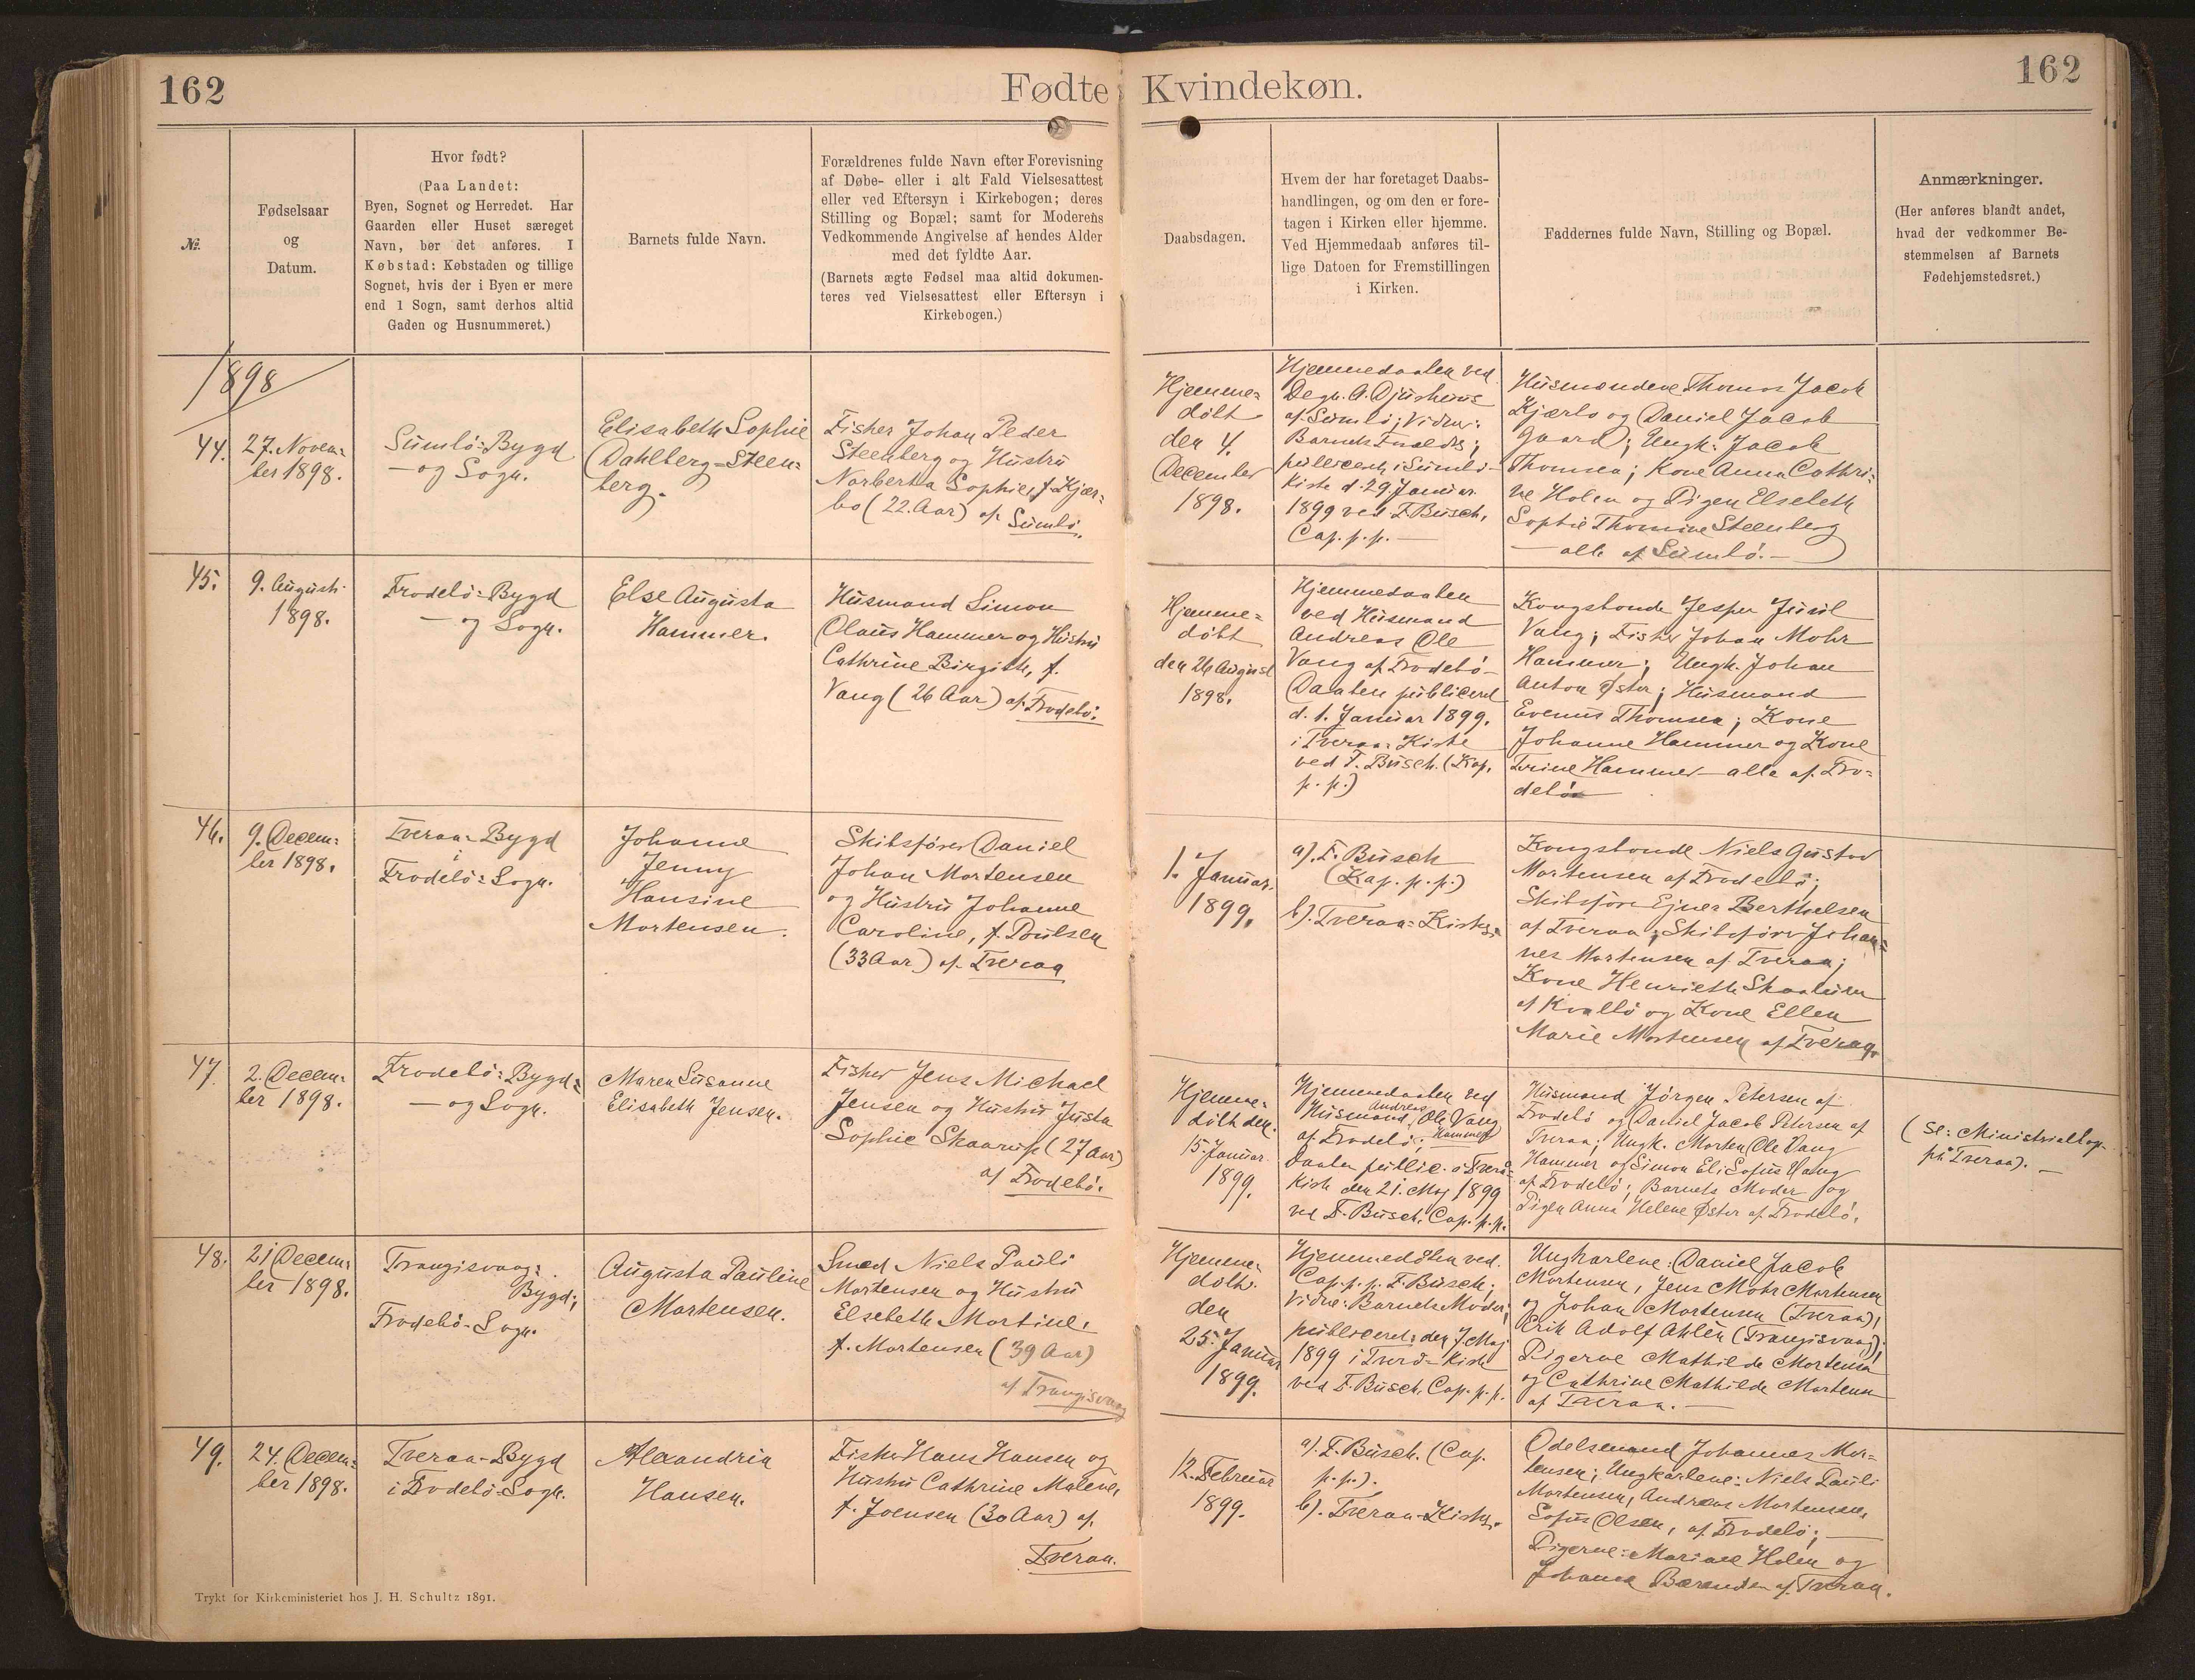 162
Fødte
Kvindekøn.
162
№.
Fødselsaar
og
Datum.
Hvor født?
(Paa Landet:
Byen, Sognet og Herredet. Har
Gaarden eller Huset særeget
Navn, bør det anføres. I
Købstad: Købstaden og tillige
Sognet, hvis der i Byen er mere
end 1 Sogn, samt derhos altid
Gaden og Husnummeret.)
Barnets fulde Navn.
Forældrenes fulde Navn efter Forevisning
af Døbe- eller i alt Fald Vielsesattest
eller ved Eftersyn i Kirkebogen; deres
Stilling og Bopæl; samt for Moderens
Vedkommende Angivelse af hendes Alder
med det fyldte Aar.
(Barnets ægte Fødsel maa altid dokumen-
teres ved Vielsesattest eller Eftersyn i
Kirkebogen.)
Daabsdagen.
Hvem der har foretaget Daabs-
handlingen, og om den er fore-
tagen i Kirken eller hjemme.
Ved Hjemmedaab anføres til-
lige Datoen for Fremstillingen
i Kirken.
Faddernes fulde Navn, Stilling og Bopæl.
Anmærkninger.
(Her anføres blandt andet,
hvad der vedkommer Be-
stemmelsen af Barnets
Fødehjemstedsret.)
1898
44.
27. Novem-
ber 1898.
Sumbø-Bygd
- og Sogn.
Elisabeth Sophie
Dahlberg-Steen-
berg.
Fisker Johan Peder
Steenberg og Hustru
Norberta Sophie, f. Kjær-
bo (22 Aar) af Sumbø.
Hjemme-
døbt
den 4.
December
1898.
Hjemmedaaben ved
Degn. A. Djurhuus
af Sumbø; Vidne:
Barnets Forældre;
publiceret i Sumbø-
Kirke d. 29 Januar
1899 ved F. Busch,
Cap. p. p. -
Husmændene Thomas Jacob
Kjærbo og Daniel Jacob
Gaard; Ungk. Jacob
Thomsen; Kone Anna Cathri-
ne Holm og Pigen Elsebeth
Sophie Thomine Steenberg
- alle af Sumbø. -
45.
9. August
1898.
Frodebø-Bygd
- og Sogn.
Else Augusta
Hammer.
Husmand Simon
Olaus Hammer og Hustru
Cathrine Birgith, f.
Vang (26 Aar) af Frodebø.
Hjemme-
døbt
den 26 August
1898.
Hjemmedaaben
ved Husmand
Andreas Ole
Vang af Frodebø-
Daaben publiceret
d. 1. Januar 1899.
i Tveraa-Kirke
ved F. Busch. (Kap.
p. p.)
Kongsbonde Jesper Juul
Vang; Fisker Johan Mohr
Hammer; Ungk. Johan
Anton Øster; Husmand
Evenus Thomsen; Kone
Johanne Hammer og Kone
Trine Hammer - alle af Fro-
debø
46.
9. Decem-
ber 1898.
Tveraa-Bygd
i
Frodebø-Sogn.
Johanne
Jenny
Hansine
Mortensen.
Skibsfører Daniel
Johan Mortensen
og Hustru Johanne
Caroline, f. Poulsen
(33 Aar) af Tveraa
1. Januar
1899.
a). F. Busch
(Kap. p. p.)
b). Tveraa-Kirke.
Kongsbonde Niels Gustav
Mortensen af Frodebø;
Skibsfører Ejner Berthelsen
af Tveraa; Skibsfører Johan-
nes Mortensen af Tveraa;
Kone Henriette Skaalum
af Kvalbø og Kone Ellen
Marie Mortensen af Tveraa.
47.
2. Decem-
ber 1898.
Frodebø-Bygd-
- og Sogn.
Maren Susanne
Elisabeth Jensen.
Fisker Jens Michael
Jensen og Hustru Justa
Sophie Skaarup (27 Aar)
af Frodebø.
Hjemme-
døbt den.
15. Januar
1899.
Hjemmedaaben ved
Husmand Andreas Ole Vang
af Frodebø; Hammer
Daaben public. i Tverå-
Kirke den 21. Maj 1899
ved F. Busch. Cap. p. p.
Husmand Jørgen Petersen af
Frodebø og Daniel Jacob Petersen af
Tveraa; Ungk. Morten Ole Vang
Hammer og Simon Eli Sofus Vang
af Frodebø; Barnets Moder og
Pigen Anna Helene Øster af Frodebø.
(Se: Ministrialbog
på Tveraa). -
48.
21 Decem-
ber 1898.
Trangisvaag-
Bygd;
Frodebø-Sogn.
Augusta Pauline
Mortensen.
Smed Niels Pauli
Mortensen og Hustru
Elsebeth Martine,
f. Mortensen (39 Aar)
af Trangisvaag
Hjemme-
døbt.
den
25. Januar
1899.
Hjemmedøbt ved.
Cap. p. p. F. Busch;
Vidne: Barnets Moder;
publiceret den 7 Maj
1899 i Tverå-Kirke
ved F. Busch. Cap. p. p.
Ungkarlene: Daniel Jacob
Mortensen, Jens Mohr Mortensen
og Johan Mortensen (Tveraa),
Erik Adolf Ahlén (Trangisvaag);
Pigerne Mathilde Mortensen
og Cathrine Mathilde Mortensen
af Tveraa. -
49.
24. Decem-
ber 1898.
Tveraa-Bygd
i Frodebø-Sogn.
Alexandria
Hansen.
Fisker Hans Hansen og
Hustru Cathrine Malene,
f. Joensen (30 Aar) af.
Tveraa.
12. Februar
1899.
a). F. Busch. (Cap.
p. p.).
b). Tveraa-Kirke.
Odelsmand Johannes Mor-
tensen; Ungkarlene: Niels Pauli
Mortensen, Andreas Mortensen,
Sofus Olsen, af Frodebø; -
Pigerne: Mariane Holm og
Johanna Bærendsen af Tveraa.
Trykt for Kirkeministeriet hos J. H. Schultz 1891.